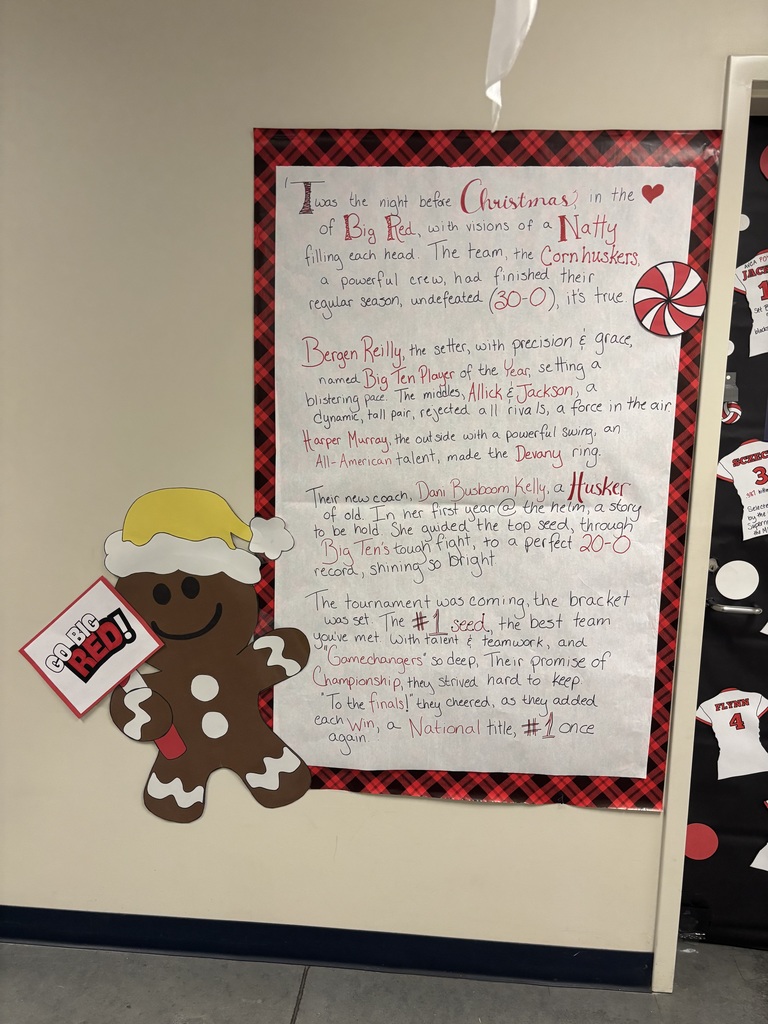 'Twas the night before Christmas, in the ❤
of Big Red, with visions of a Natty
filling each head. The team, the Cornhuskers,
a powerful crew, had finished their
regular season, undefeated (30-0), it's true.
Bergen Reilly, the setter, with precision & grace,
named Big Ten Player of the Year, setting a
blistering pace. The middles, Allick & Jackson, a
dynamic, tall pair, rejected all rivals, a force in the air.
Harper Murray, the outside with a powerful swing, an
All-American talent, made the Devany ring.
Their new coach, Dani Busboom Kelly, a Husker
of old. In her first year @ the helm, a story
to be hold. She guided the top seed, through
Big Ten's tough fight, to a perfect 20-0
record, shining so bright
The tournament was coming, the bracket
was set. The #1 seed, the best team
you've met. With talent & teamwork, and
"Gamechangers" so deep, Their promise of
Championship, they strived hard to keep.
"To the finals!" they cheered, as they added
each Win, a National title, #1 once
again.
GO BIG
RED!
FLYNN
4